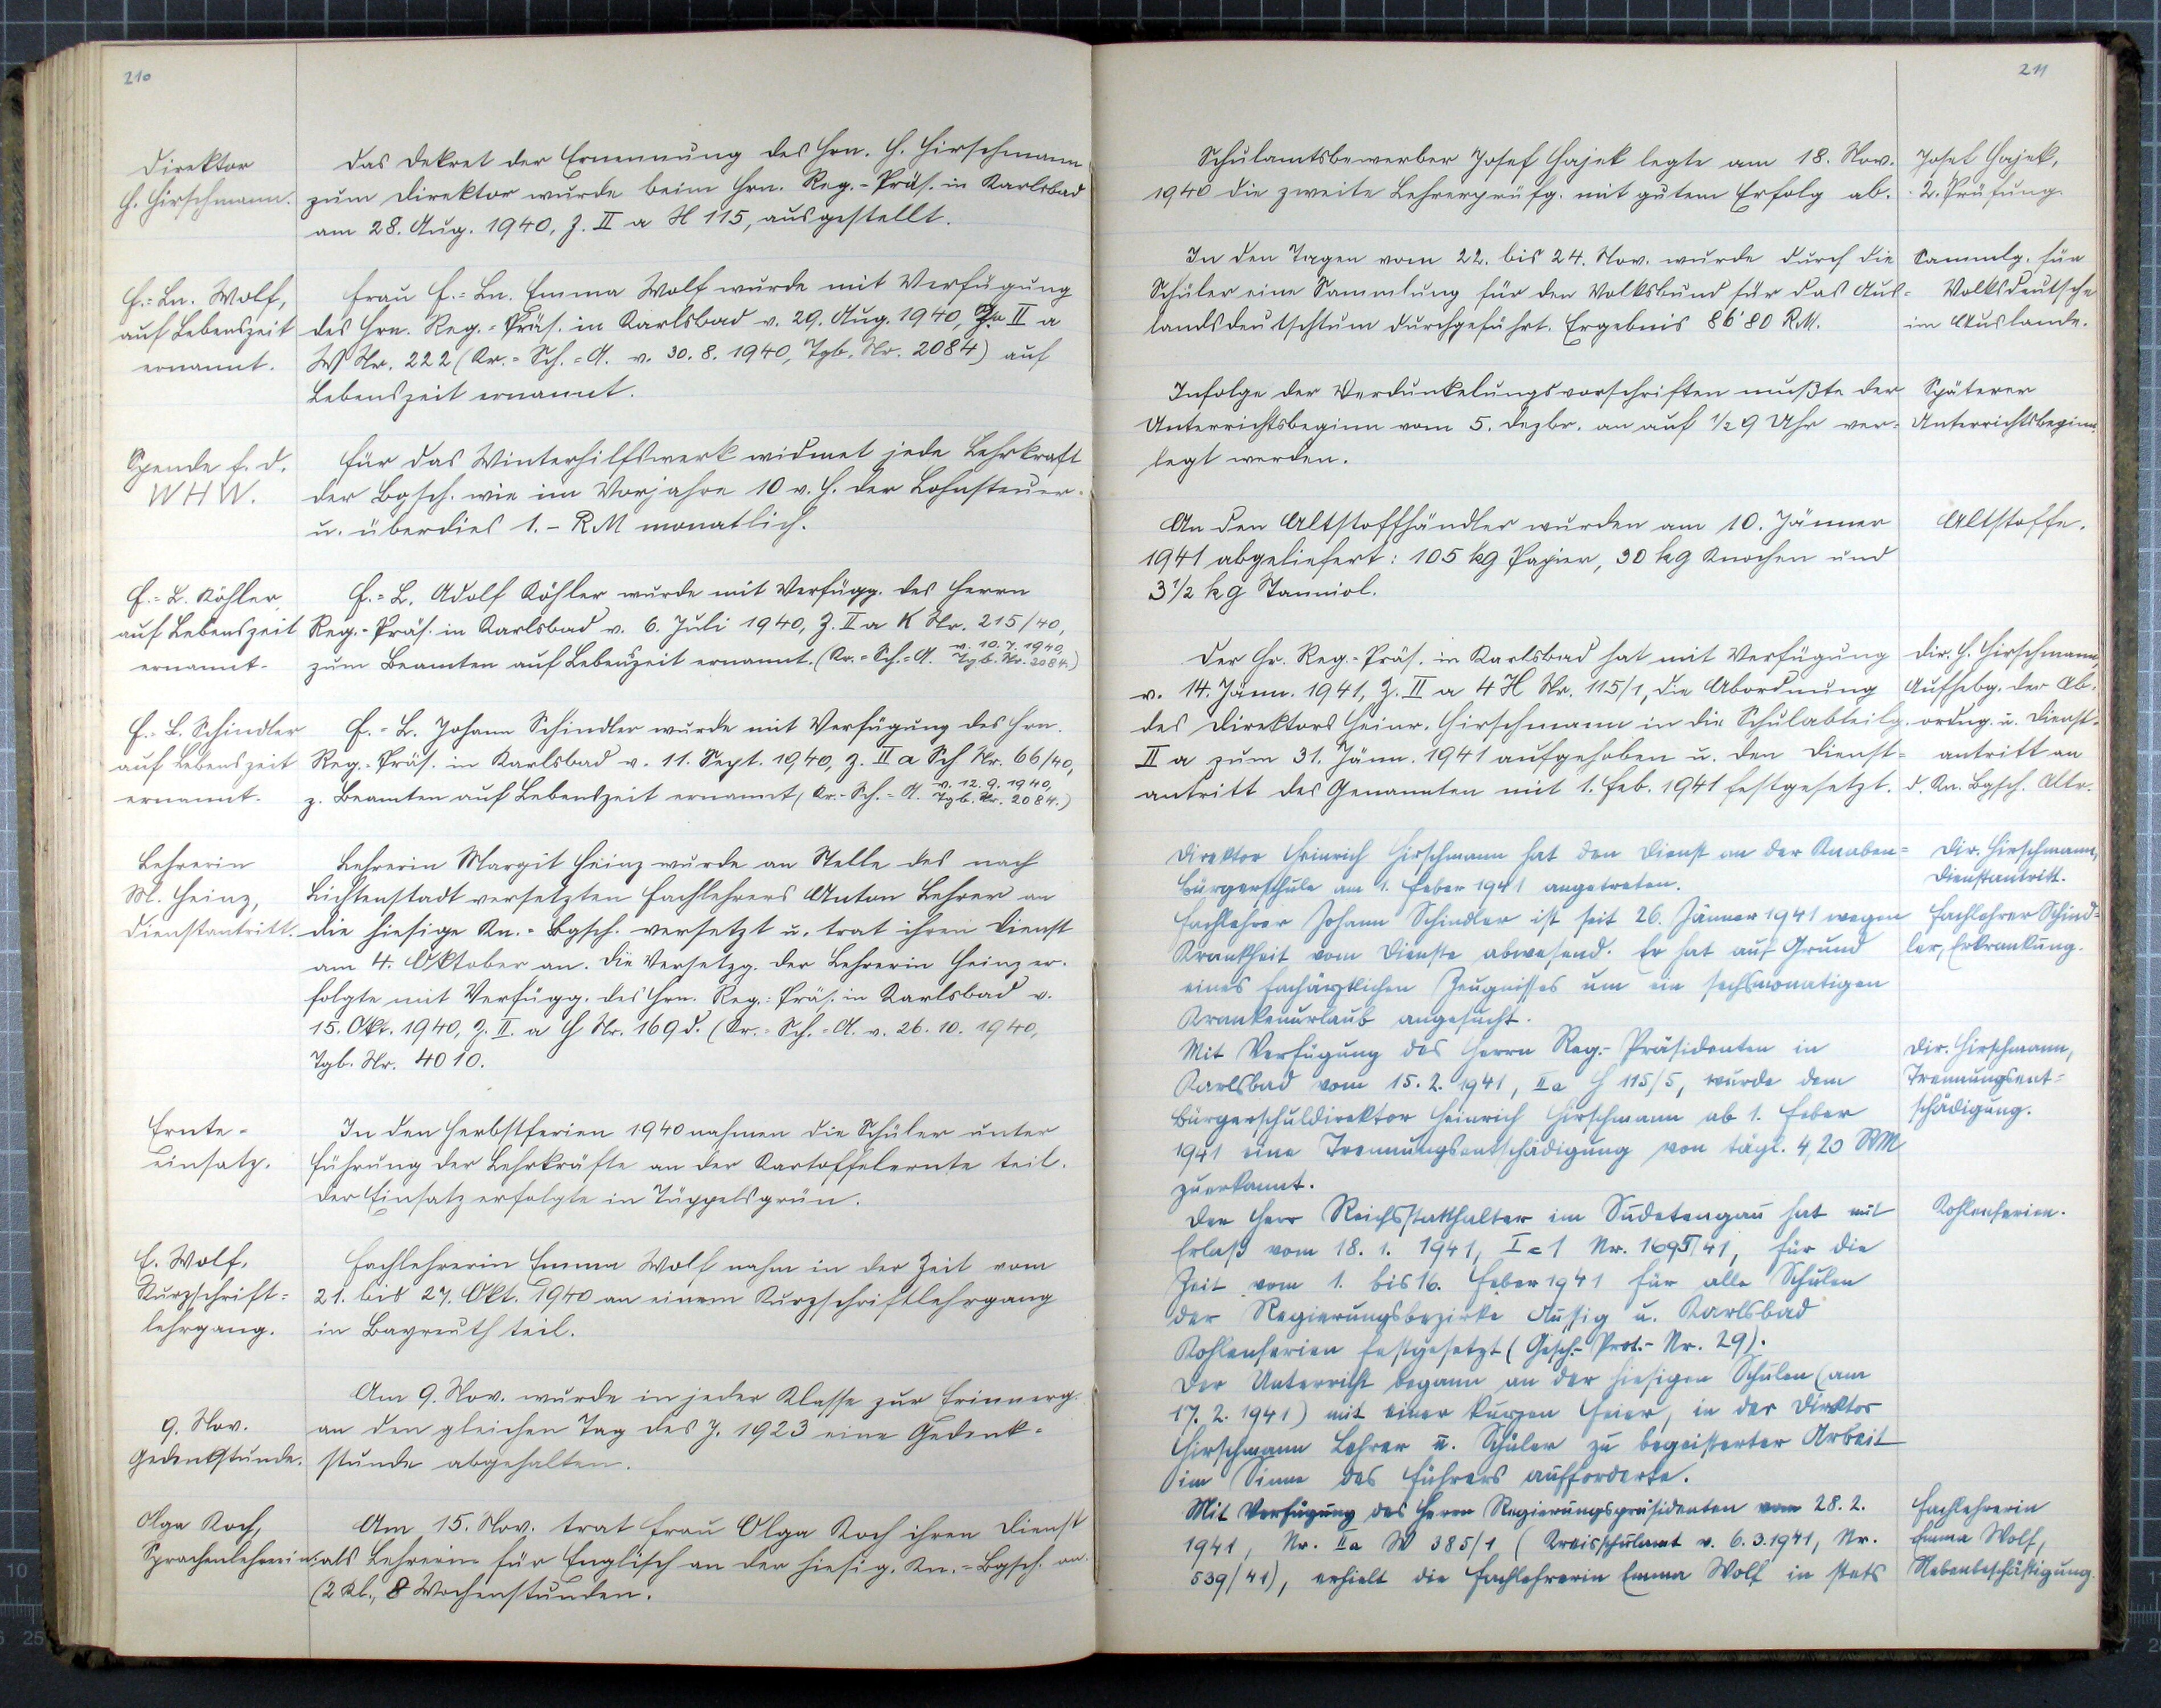 210
Direktor
H. Hirschmann.
Das Dekret der Ernennung des Hrn. H. Hirschmann
zum Direktor wurde beim Hrn. Reg.-Präs. in Karlsbad
am 28. Aug. 1940, Z. II a H 115, ausgestellt.
F.=Ln. Wolf,
auf Lebenszeit
ernannt.
Frau F.=Ln. Emma Wolf wurde mit Verfügung
des Hrn. Reg.=Präs. in Karlsbad v. 29. Aug. 1940, Z. II a
W Nr. 222 (Kr.=Sch.=A. v. 30.8.1940, Tgb. Nr. 2084) auf
Lebenszeit ernannt.
Spende f. d.
WHW.
Für das Winterhilfswerk widmet jede Lehrkraft
der Bgsch. wie im Vorjahre 10 v. H. der Lohnsteuer
u. überdies 1.- RM monatlich.
F.=L. Köhler,
auf Lebenszeit
ernannt.
F.=L. Adolf Köhler wurde mit Verfügg. des Herrn
Reg.-Präs. in Karlsbad v. 6. Juli 1940, Z. II a K Nr. 215/40,
zum Beamten auf Lebenszeit ernannt. (Kr.=Sch.=A. v. 10.7.1940, Tgb. Nr. 2084.)
F.=L. Schindler
auf Lebenszeit
ernannt.
F.=L. Johann Schindler wurde mit Verfügung des Hrn.
Reg.-Präs. in Karlsbad v. 11. Sept. 1940, Z. II a Sch Nr. 66/40,
z. Beamten auf Lebenszeit ernannt (Kr.-Sch.=A. v. 12.9.1940, Tgb. Nr. 2084.)
Lehrerin
M. Heinz,
Dienstantritt.
Lehrerin Margit Heinz wurde an Stelle des nach
Lichtenstadt versetzten Fachlehrers Anton Lehrer an
die hiesige Kn.=Bgsch. versetzt u. trat ihren Dienst
am 4. Oktober an. Die Versetzg. der Lehrerin Heinz er-
folgte mit Verfügg. des Hrn. Reg.-Präs. in Karlsbad v.
15. Okt. 1940, Z. II. a H Nr. 169 d. (Kr.=Sch.=A. v. 26.10.1940,
Tgb. Nr. 4010.
Ernte-
einsatz.
In den Herbstferien 1940 nahmen die Schüler unter
Führung der Lehrkräfte an der Kartoffelernte teil.
Der Einsatz erfolgte in Tüppelsgrün.
E. Wolf,
Kurzschrift=
lehrgang.
Fachlehrerin Emma Wolf nahm in der Zeit vom
21. bis 27. Okt. 1940 an einem Kurzschriftlehrgang
in Bayreuth teil.
9. Nov.
Gedenkstunde.
Am 9. Nov. wurde in jeder Klasse zur Erinnerg.
an den gleichen Tag des J. 1923 eine Gedenk-
stunde abgehalten.
Olga Koch,
Sprachenlehrerin.
Am 15. Nov. trat Frau Olga Koch ihren Dienst
als Lehrerin für Englisch an der hiesig. Kn.=Bgsch. an.
(2 Kl., 8 Wochenstunden.
211
Schulamtsbewerber Josef Hajek legte am 18. Nov.
1940 die zweite Lehrerprüfg. mit gutem Erfolg ab.
Josef Hajek,
2. Prüfung.
In den Tagen vom 22. bis 24. Nov. wurde durch die
Schüler eine Sammlung für den Volksbund für das Aus-
landsdeutschtum durchgeführt. Ergebnis 86'80 RM.
Sammlg. für
Volksdeutsche
im Auslande.
Infolge der Verdunkelungsvorschriften mußte der
Unterrichtsbeginn vom 5. Dezbr. an auf ½ 9 Uhr ver-
legt werden.
Späterer
Unterrichtsbeginn.
An den Altstoffhändler wurden am 10. Jänner
1941 abgeliefert: 105 kg Papier, 30 kg Knochen und
3½ kg Stanniol.
Altstoffe.
Der Hr. Reg.-Präs. in Karlsbad hat mit Verfügung
v. 14. Jänn. 1941, Z. II a 4 H Nr. 115/1, die Abordnung
des Direktors Heinr. Hirschmann in die Schulabteilg.
II a zum 31. Jänn. 1941 aufgehoben u. den Dienst=
antritt des Genannten mit 1. Feb. 1941 festgesetzt.
Dir. H. Hirschmann,
Aufhebg. der Ab-
ordng. u. Dienst-
antritt an
d. Kn. Bgsch. Altr.
Direktor Heinrich Hirschmann hat den Dienst an der Knaben=
bürgerschule am 1. Feber 1941 angetreten.
Dir. Hirschmann,
Dienstantritt.
Fachlehrer Johann Schindler ist seit 26. Jänner 1941 wegen
Krankheit vom Dienste abwesend. Er hat auf Grund
eines fachärztlichen Zeugnisses um ein sechsmonatigen
Krankenurlaub angesucht.
Fachlehrer Schind=
ler, Erkrankung.
Mit Verfügung des Herrn Reg.-Präsidenten in
Karlsbad vom 15.2.1941, IIa H 115/5, wurde dem
Bürgerschuldirektor Heinrich Hirschmann ab 1. Feber
1941 eine Trennungsentschädigung von tägl. 4,20 RM
zuerkannt.
Dir. Hirschmann,
Trennungsent=
schädigung.
Der Herr Reichsstatthalter im Sudetengau hat mit
Erlaß vom 18. 1. 1941, I c 1 Nr. 1695/41, für die
Zeit vom 1. bis 16. Feber 1941 für alle Schulen
der Regierungsbezirke Aussig u. Karlsbad
Kohlenferien festgesetzt (Gesch.-Prot.-Nr. 29).
Kohlenferien.
Der Unterricht begann an der hiesigen Schulen (am
17.2.1941) mit einer kurzen Feier, in der Direktor
Hirschmann Lehrer u. Schüler zu begeisterter Arbeit
im Sinne des Führers aufforderte.
Mit Verfügung des Herrn Regierungspräsidenten vom 28.2.
1941, Nr. IIa W 385/1 (Kreisschulamt v. 6.3.1941, Nr.
539/41), erhielt die Fachlehrerin Emma Wolf in stets
Fachlehrerin
Emma Wolf,
Nebenbeschäftigung.